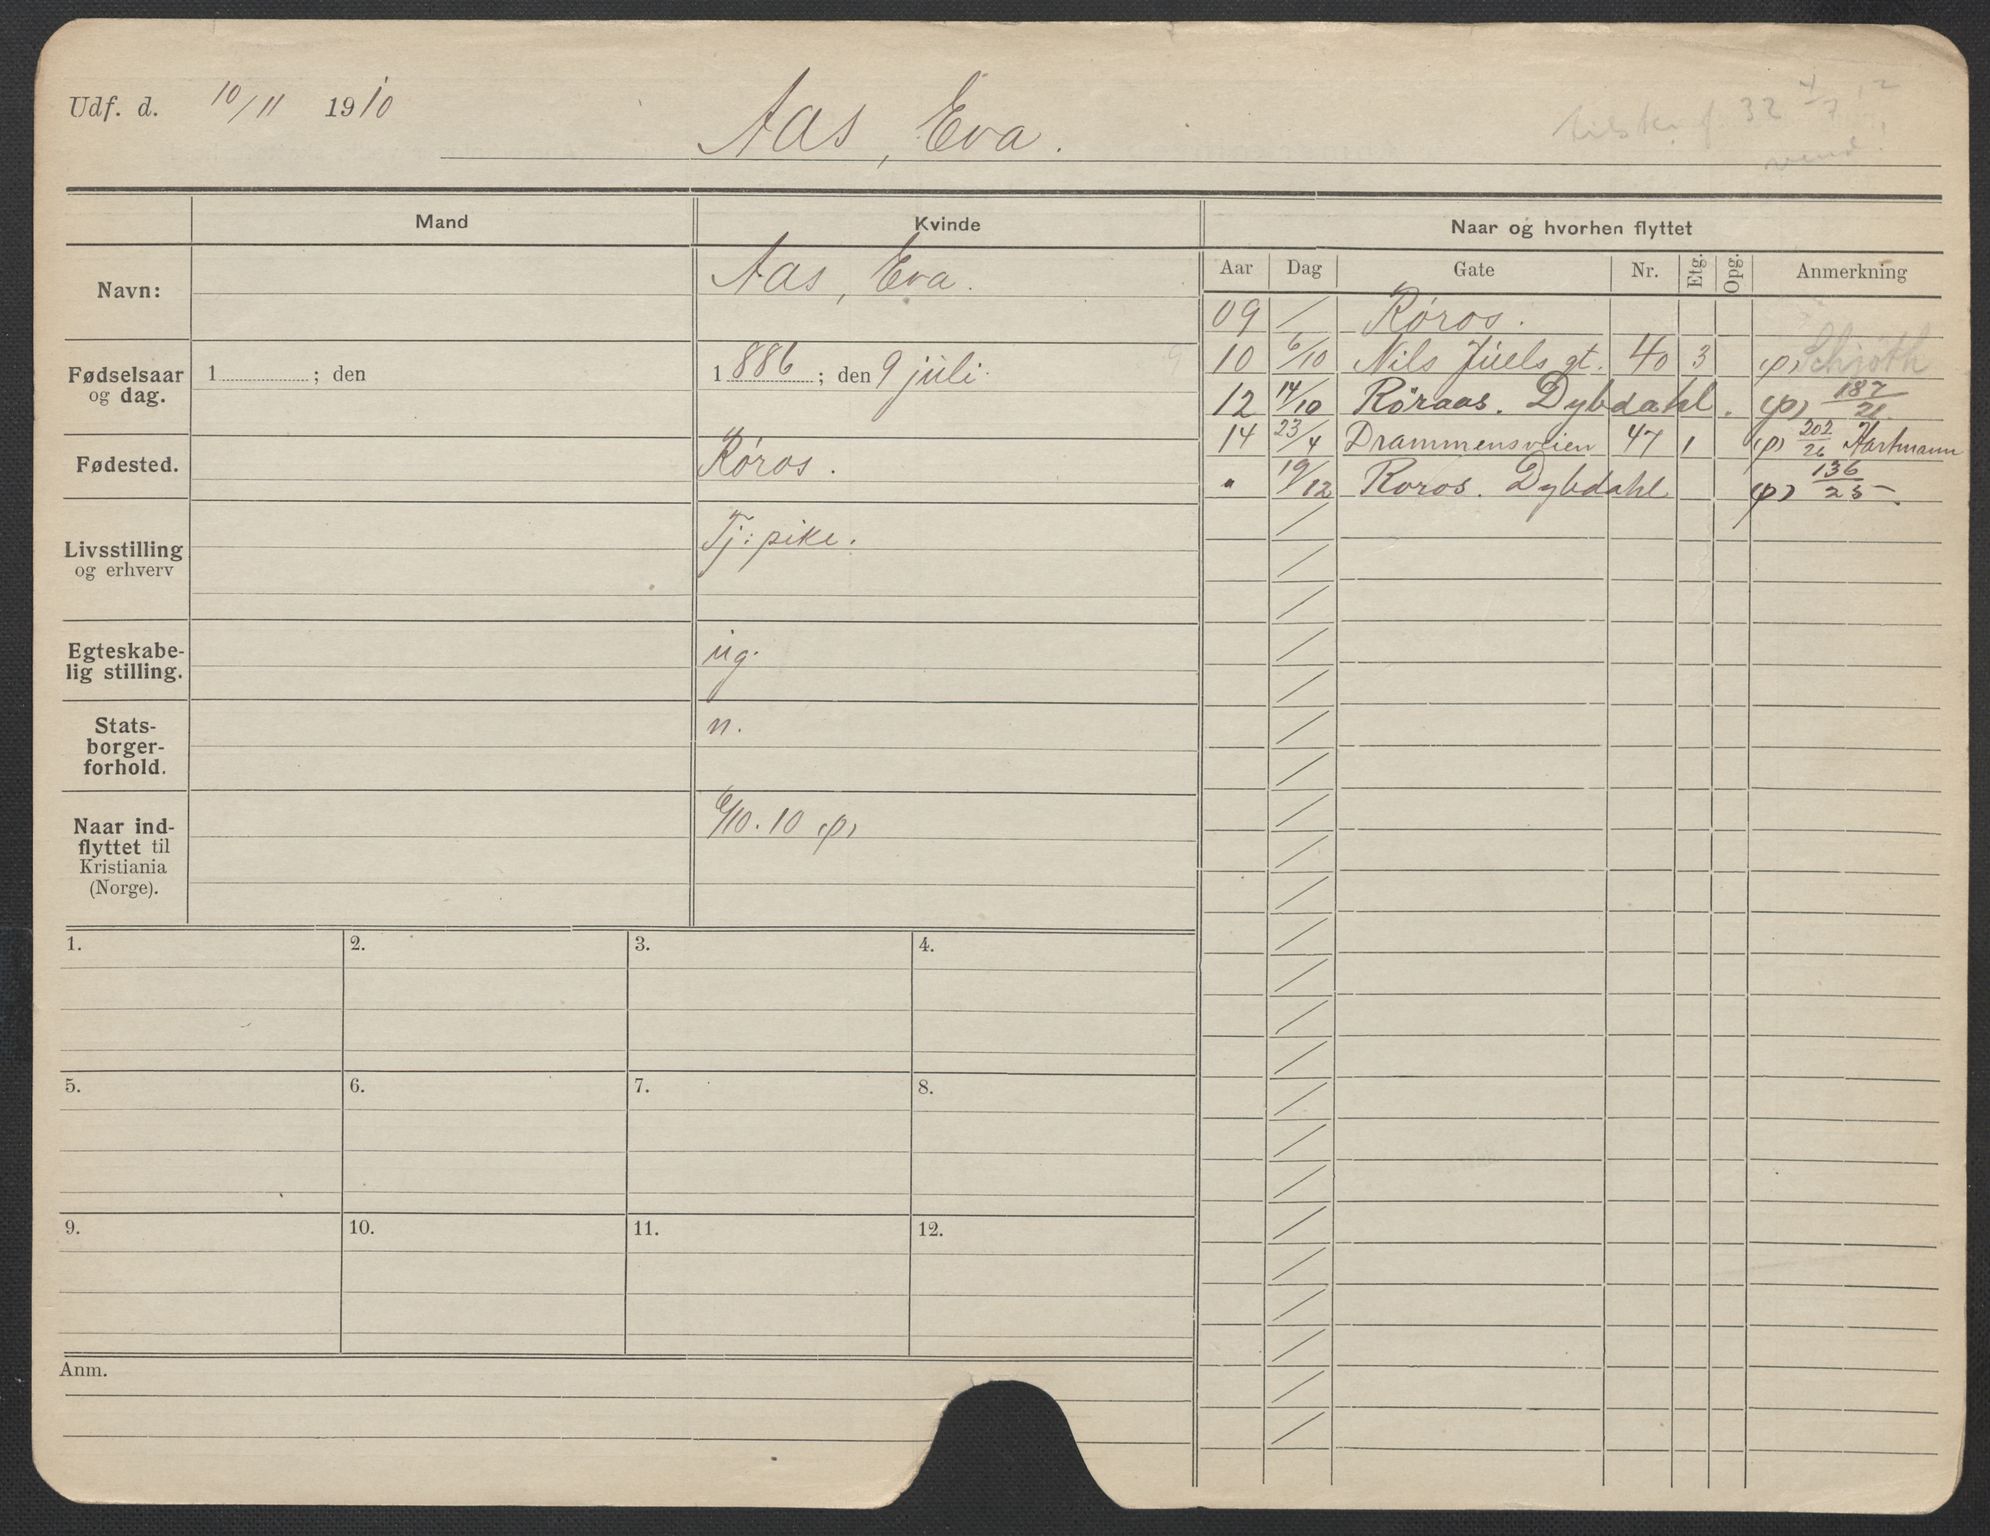 Udf. d. 10/11 1910
Aas, Eva.
tilskr. f. 32 4/7 12
vend!
Mand Kvinde Naar og hvorhen flyttet
Navn: Aas, Eva.
Fødselsaar og dag. 1 ; den 1886 ; den 9 juli.
Fødested. Røros.
Livsstilling og erhverv Tj: pike.
Egteskabe-
lig stilling. ug.
Stats-
borger-
forhold. n.
Naar ind-
flyttet til
Kristiania
(Norge). 6/10. 10 (p)
Aar Dag Gate Nr. Etg. Opg. Anmerkning
09 / Røros.
10 6/10 Nils Juels gt. 40 3 (p) Schjøth
12 14/10 Røraas. Dybdahl. (p) 187/21.
14 23/4 Drammensveien 47 1 (p) 202/26 Hartmann
" 19/12 Røros. Dybdahl (p) 136/25.
1. 2. 3. 4.
5. 6. 7. 8.
9. 10. 11. 12.
Anm.